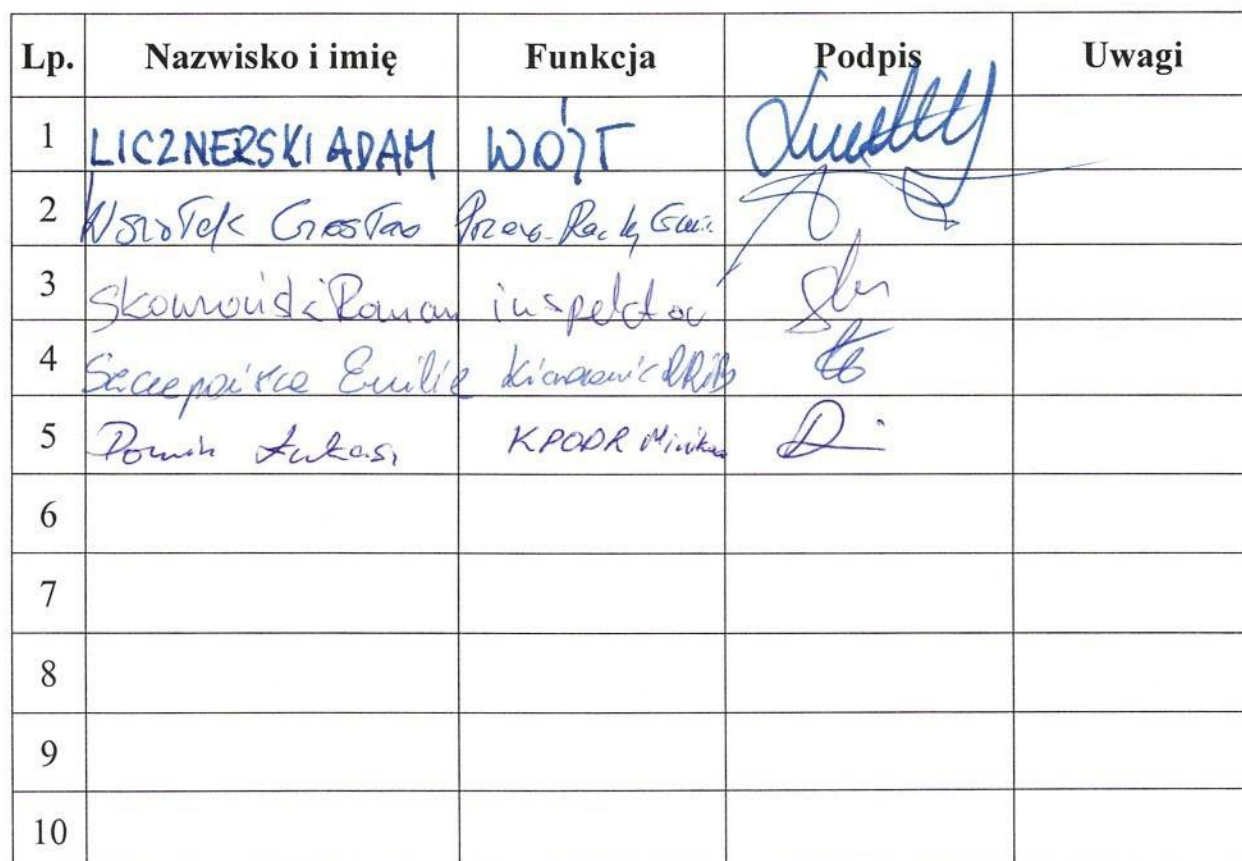 Lp. Nazwisko i imię Funkcja Podpis Uwagi
1 LICZNERSKI ADAM WÓJT
2 Wszołek Czesław Przew. Rady Gmi
3 Skowroński Roman inspektor
4 Szczepańska Emilia Kierownik RRiB
5 Domin Łukasz KPODR Minikowo
6
7
8
9
10